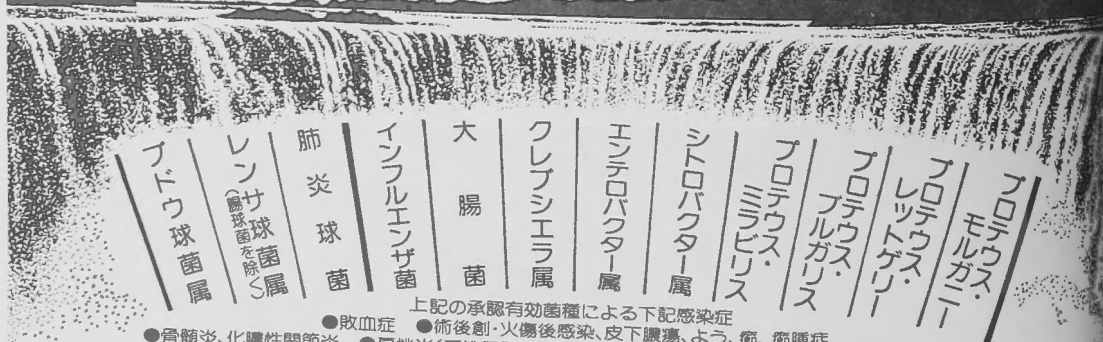 ブドウ球菌属
レンサ球菌属
(腸球菌を除く)
肺炎球菌
インフルエンザ菌
大腸菌
クレブシエラ属
エンテロバクター属
シトロバクター属
プロテウス・
ミラビリス
プロテウス・
ブルガリス
プロテウス・
レットゲリー
プロテウス・
モルガニー
上記の承認有効菌種による下記感染症
●敗血症 ●術後創・火傷後感染、皮下膿瘍、よう、癤、癤腫症
●骨髄炎、化膿性関節炎